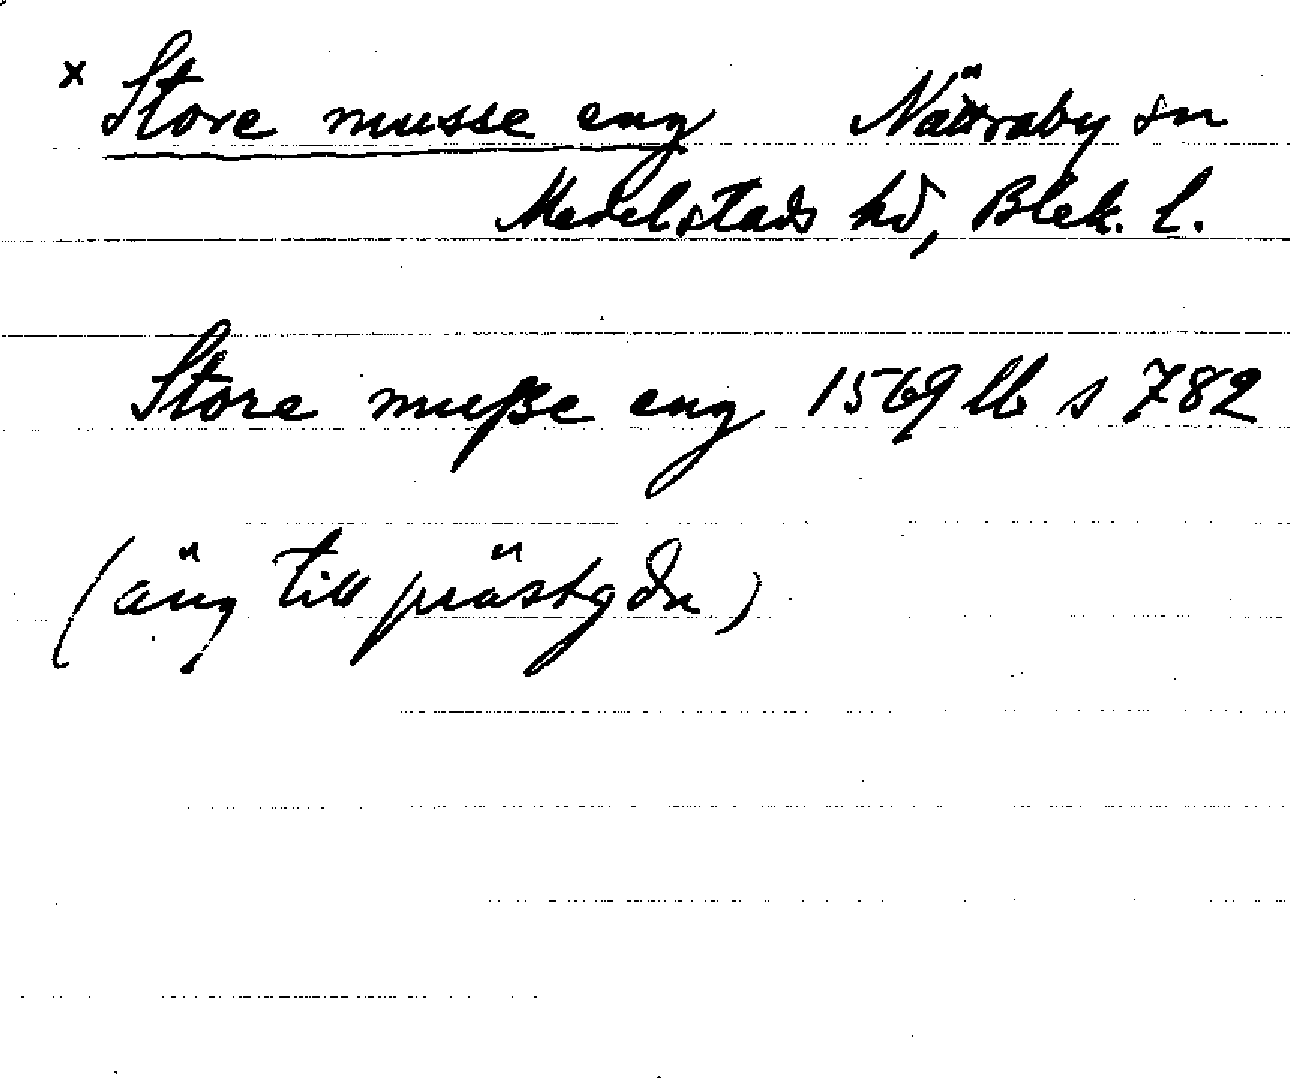 x Store musse eng Nättraby sn
Medelstads hd, Blek. l.
Store muße eng 1569 lb s 782
(äng till prästgdn)